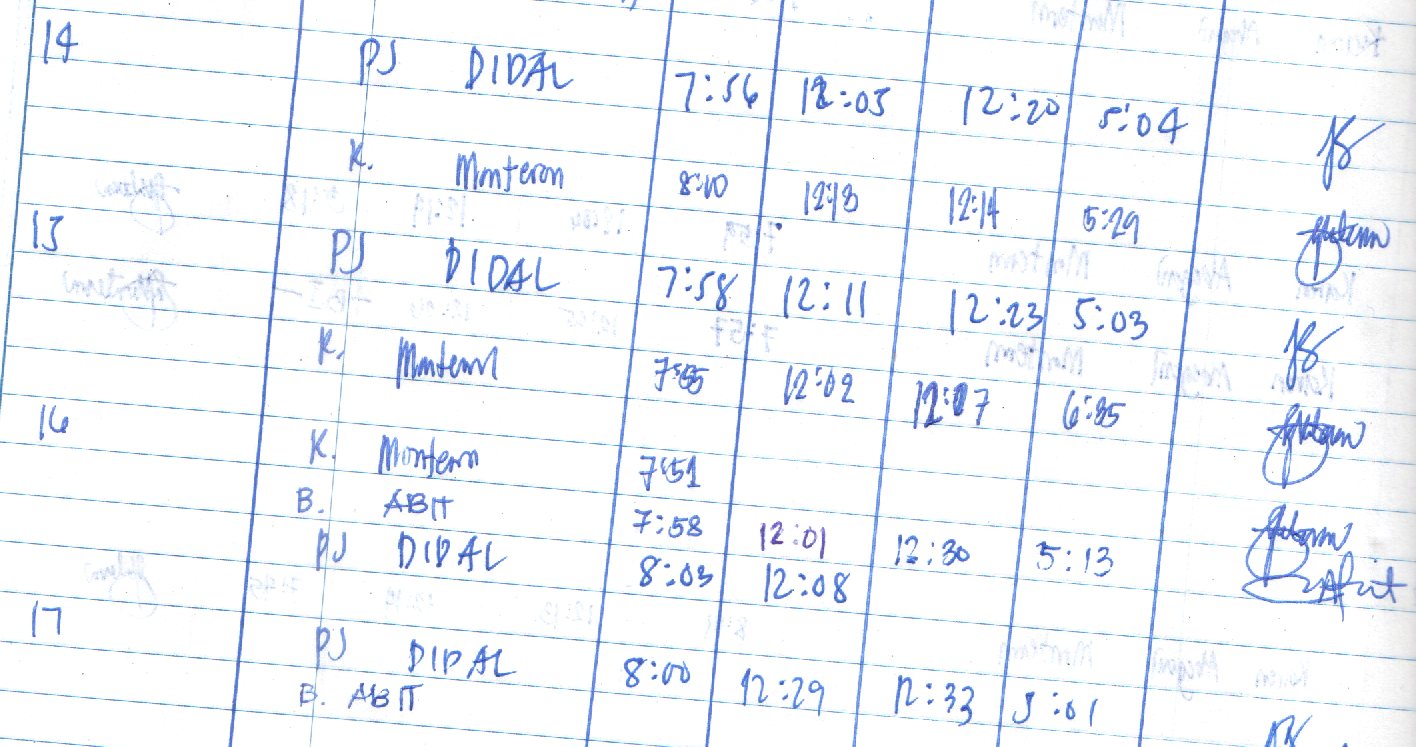 14 PJ DIDAL 7:56 12:05 12:20 5:04
K. Monteron 8:10 12:13 12:14 5:29
15 PJ DIDAL 7:58 12:11 12:23 5:03
K. Monteron 7:55 12:02 12:17 6:35
16 K. Monteron 7:51
B. ABIT 7:58 12:01 12:30 5:13
PJ DIDAL 8:03 12:08
17 PJ DIDAL 8:00 12:29 12:33 5:01
B. ABIT